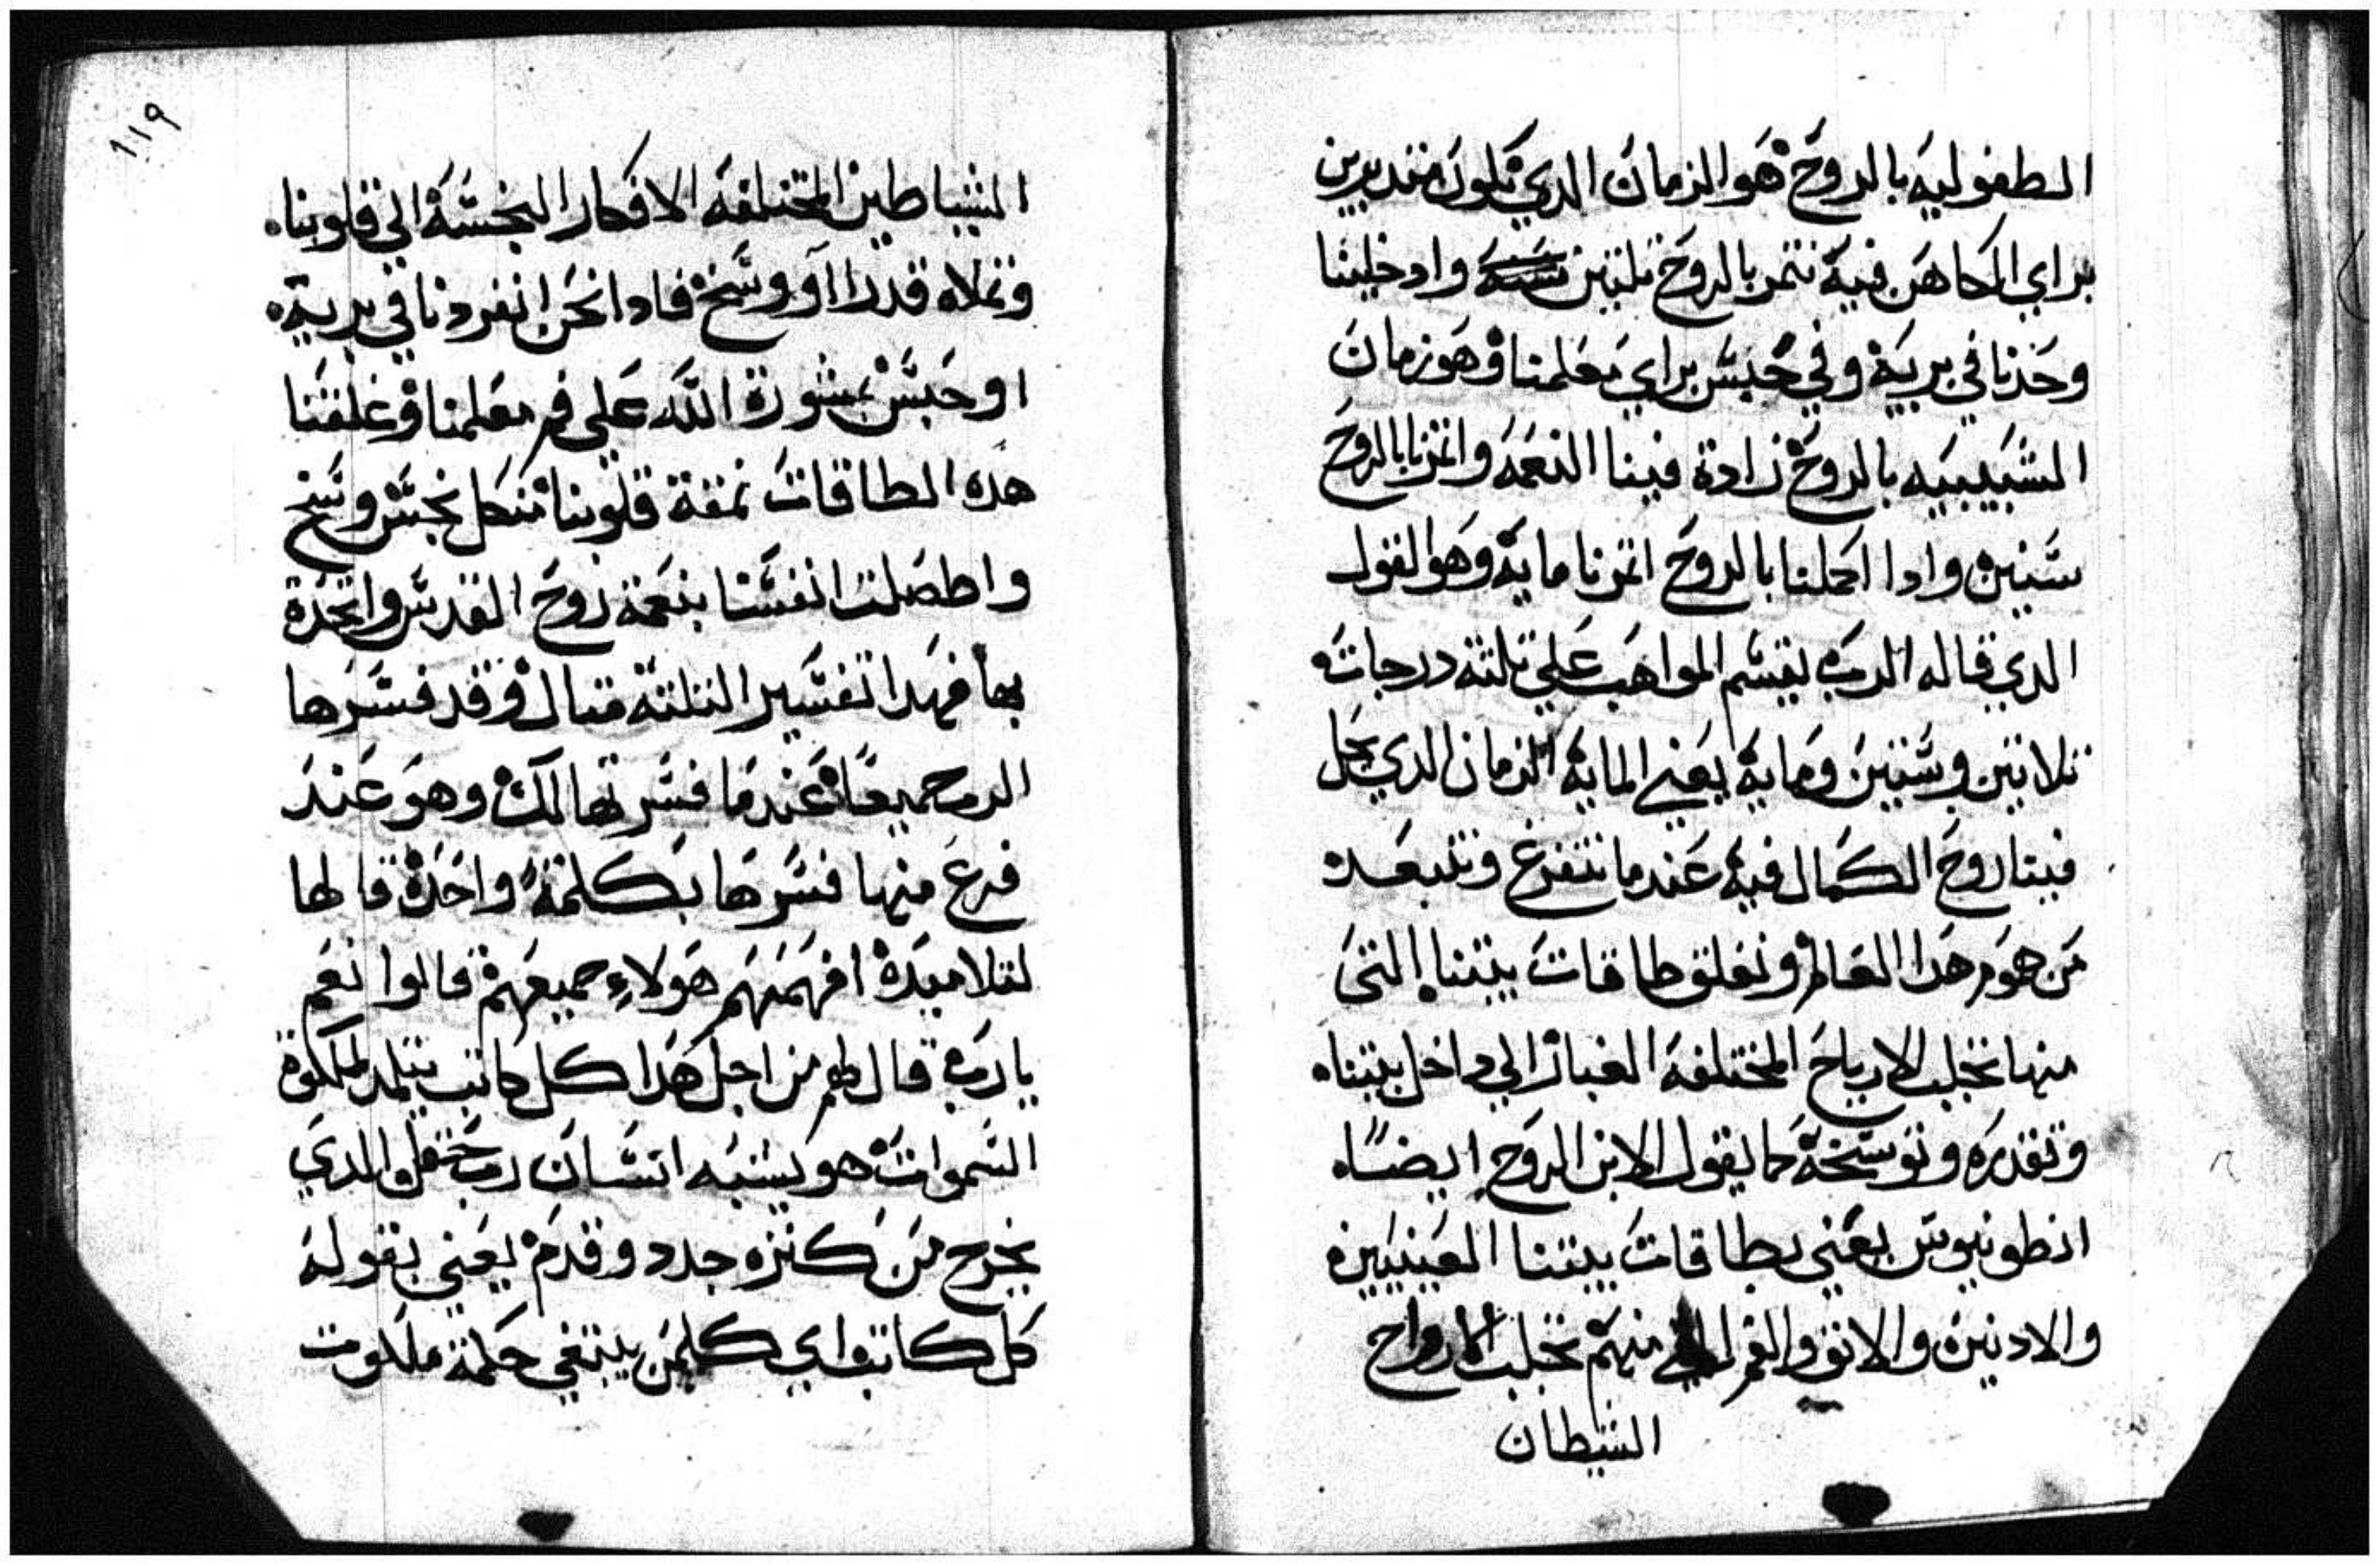 الطفوليه بالروح هو الزمان الدي نكون متدبرين
براي الكاهن فيه نتمر بالروح تلتين وادخلينا
وحدنا في بريه وفي حبس براي معلمنا وهو زمان
الشبيبيه بالروح زادة فينا النعمه واتمرنا بالروح
ستين وادا اكملنا بالروح اتمرنا مايه وهو القول
الدي قاله الرب يقسم المواهب علي تلتة درجات
تلاتين وستين ومايه يعني المايه الزمان الدي يحل
فينا روح الكمال فيه عندما نتفرغ ونتبعد
من هموم هدا العالم ونغلق طاقات بيتنا التى
منها تجلب الارياح المختلفه الغبار الي داخل بيتناه
وتقدره وتوسخه كما يقول الابن الروح ايضاه
انطونيوس يعني بطاقات بيتنا العينيين
والادنين والانف والفم منهم تجلب الارواح
الشيطان
١١٩
الشياطين المختلفه الافكار النجسه الي قلوبناه
وتملاه قدرا او وسخ فادا نحن انفردنا في بريه
او حبس بمشورة الله علي فم معلمنا وغلقنا
هده الطاقات نمقة قلوبنا من كل نجس وسخ
واطصلت انفسنا بنعمة روح القدس واتحدة
بها فهدا تفسير التلتة متال وقد فسرها
الرب جميعا عندما فسرتها لك وهو عند
فرغ منها فسرها بكلمة واحدة قالها
لتلاميده افهمتهم هولاء جميعهم قالوا نعم
يارب قال لهم من اجل هدا كل كاتب يتلمد لملكوة
السموات هو يشبه انسان رب حقل الدي
يخرج من كنزه جدد وقدم يعني بقوله
كل كاتب اي كلمن يبتغي حكمة ملكوت